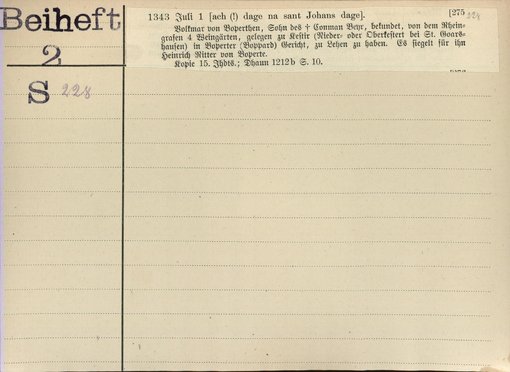 Beiheft
2
S 228
1343 Juli 1 [ach (!) dage na sant Johans dage].
[275
228
Volkmar von Boperthen, Sohn des † Conman Beyr, bekundet, von dem Rhein-
grafen 4 Weingärten, gelegen zu Kestit (Nieder- oder Oberkestert bei St. Goars-
hausen) in Boperter (Boppard) Gericht, zu Lehen zu haben. Es siegelt für ihn
Heinrich Ritter von Boperte.
Kopie 15. Jhdts.; Dhaun 1212b S. 10.